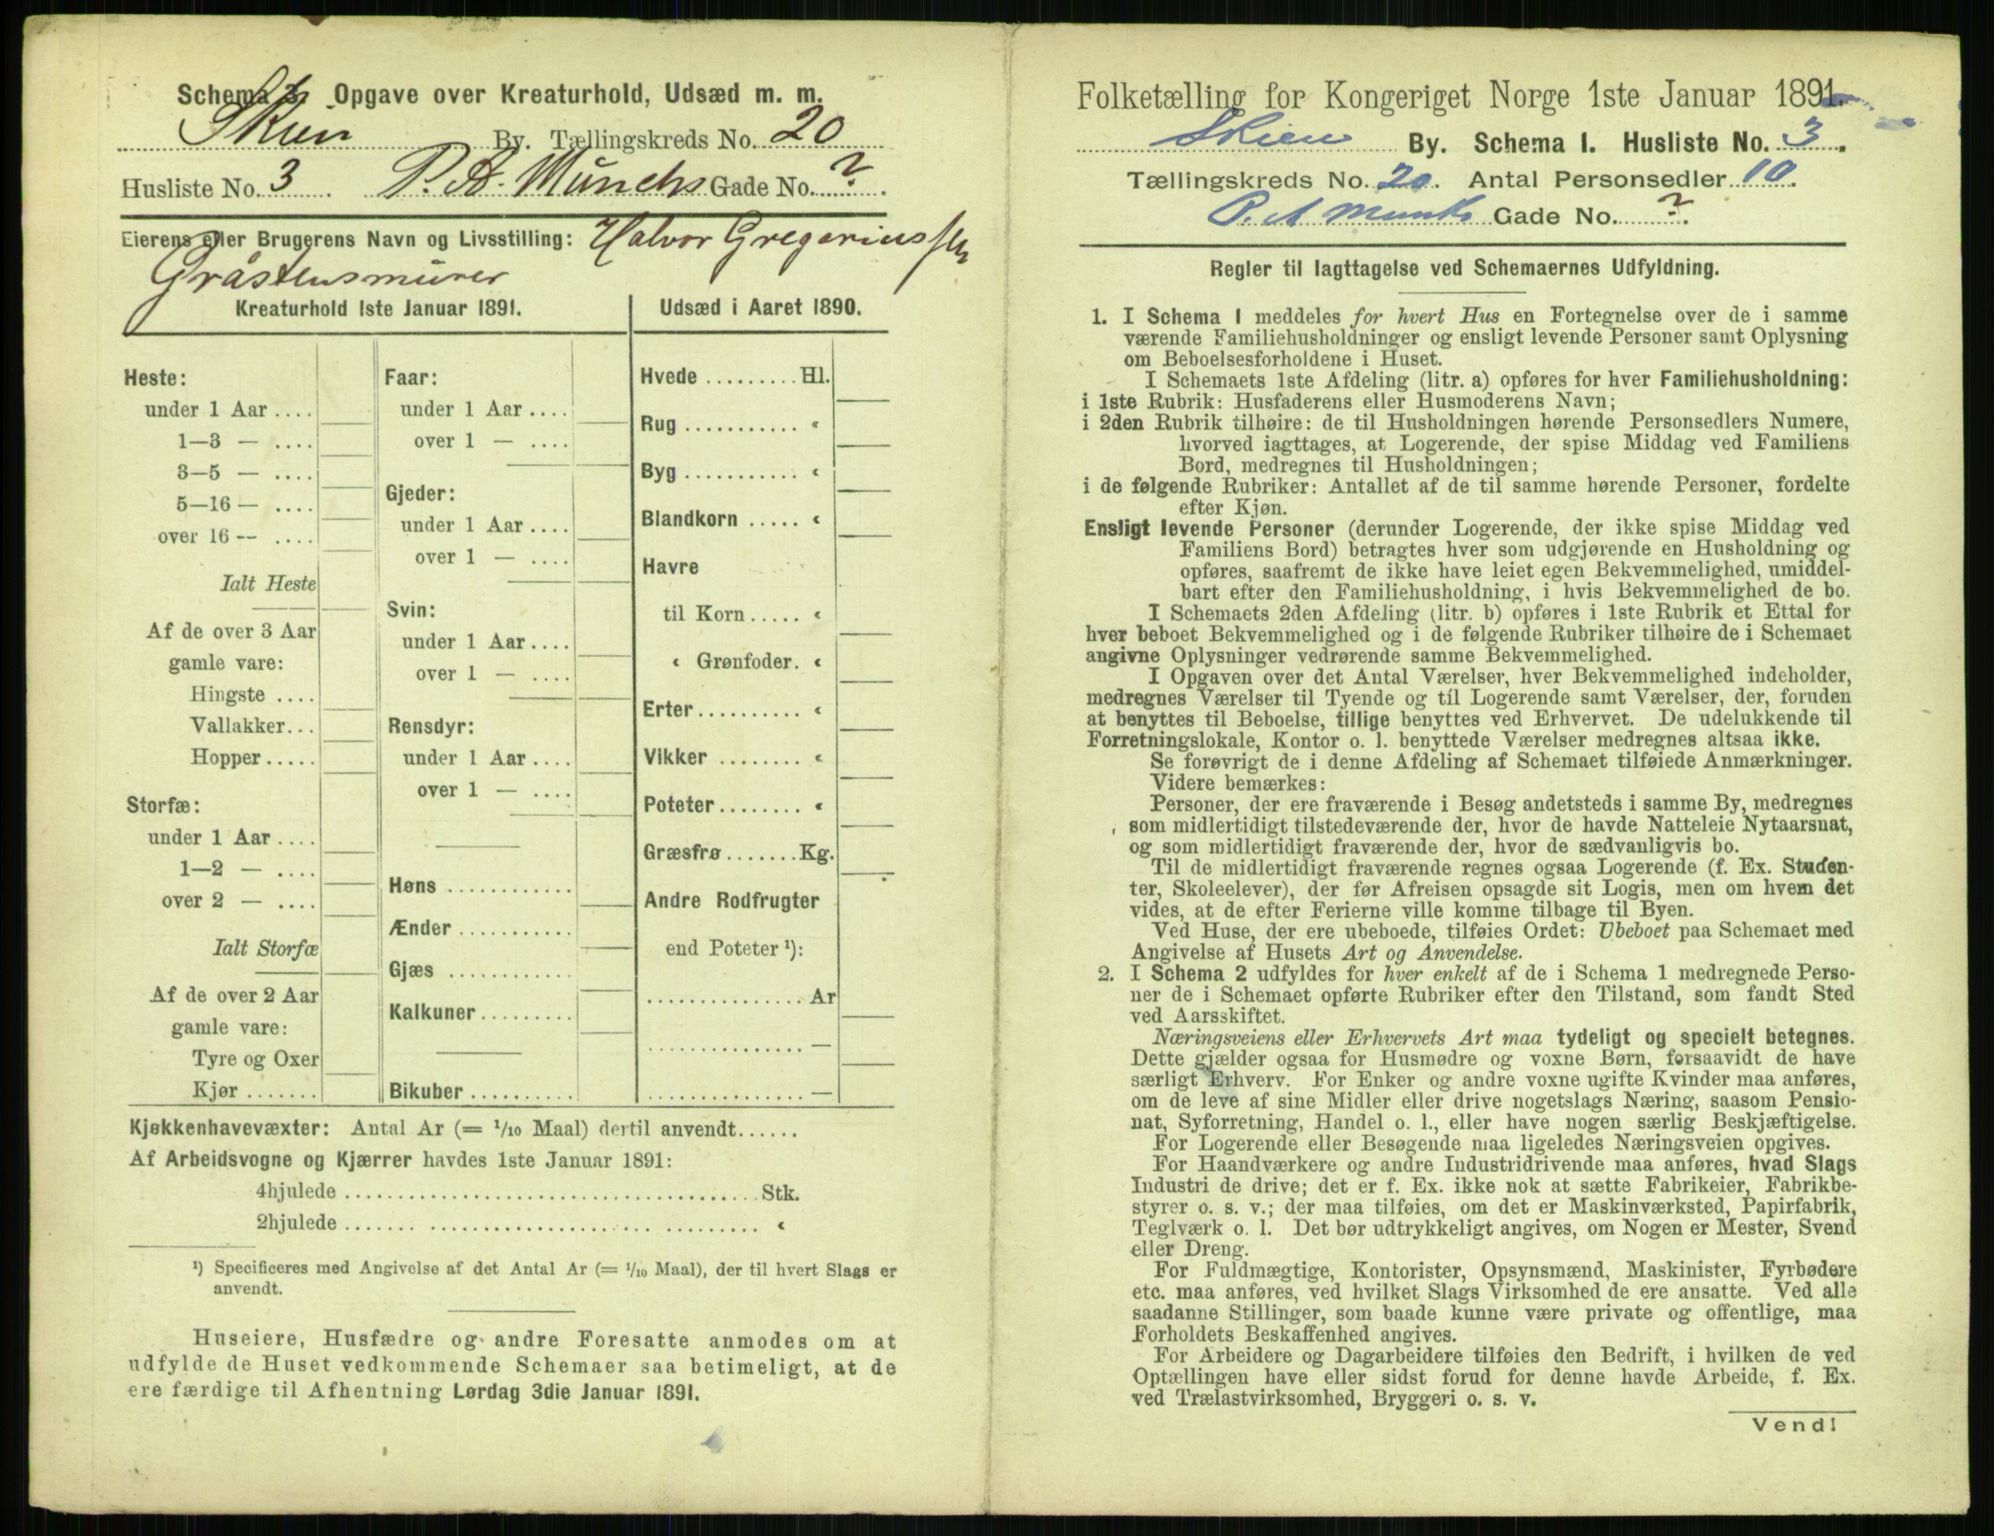 Schema 3. Opgave over Kreaturhold, Udsæd m. m.
Skien By. Tællingskreds No. 20
Husliste No. 3 P. A. Munchs Gade No. ?
Eierens eller Brugerens Navn og Livsstilling: Halvor Gregoriussen
Gråstensmurer
Kreaturhold 1ste Januar 1891.
Heste:
under 1 Aar ....
1—3 — ....
3—5 — ....
5—16 — ....
over 16 — ....
Ialt Heste
Af de over 3 Aar
gamle vare:
Hingste ....
Vallakker...
Hopper.....
Storfæ:
under 1 Aar ....
1—2 — ....
over 2 — ....
Ialt Storfæ
Af de over 2 Aar
gamle vare:
Tyre og Oxer
Kjør .......
Faar:
under 1 Aar ....
over 1 — ....
Gjeder:
under 1 Aar ....
over 1 — ....
Svin:
under 1 Aar ....
over 1 — ....
Rensdyr:
under 1 Aar ....
over 1 — ....
Høns ............
Ænder ...........
Gjæs ............
Kalkuner.........
Bikuber ..........
Udsæd i Aaret 1890.
Hvede ......... Hl.
Rug ........... «
Byg ........... «
Blandkorn ..... «
Havre
til Korn ..... «
« Grønfoder. «
Erter.......... «
Vikker ........ «
Poteter........ «
Græsfrø .......Kg.
Andre Rodfrugter
end Poteter ¹):
............... Ar
............... —
............... —
Kjøkkenhavevæxter: Antal Ar (= 1/10 Maal) dertil anvendt......
Af Arbeidsvogne og Kjærrer havdes 1ste Januar 1891:
4hjulede ....................................... Stk.
2hjulede ....................................... «
¹) Specificeres med Angivelse af det Antal Ar (= 1/10 Maal), der til hvert Slags er
anvendt.
Huseiere, Husfædre og andre Foresatte anmodes om at
udfylde de Huset vedkommende Schemaer saa betimeligt, at de
ere færdige til Afhentning Lørdag 3die Januar 1891.
Folketælling for Kongeriget Norge 1ste Januar 1891.
Skien By. Schema I. Husliste No. 3.
Tællingskreds No. 20. Antal Personsedler 10.
P. A Munks Gade No. ?.
Regler til Iagttagelse ved Schemaernes Udfyldning.
1. I Schema 1 meddeles for hvert Hus en Fortegnelse over de i samme
værende Familiehusholdninger og ensligt levende Personer samt Oplysning
om Beboelsesforholdene i Huset.
I Schemaets 1ste Afdeling (litr. a) opføres for hver Familiehusholdning:
i 1ste Rubrik: Husfaderens eller Husmoderens Navn;
i 2den Rubrik tilhøire: de til Husholdningen hørende Personsedlers Numere,
hvorved iagttages, at Logerende, der spise Middag ved Familiens
Bord, medregnes til Husholdningen;
i de følgende Rubriker: Antallet af de til samme hørende Personer, fordelte
efter Kjøn.
Ensligt levende Personer (derunder Logerende, der ikke spise Middag ved
Familiens Bord) betragtes hver som udgjørende en Husholdning og
opføres, saafremt de ikke have leiet egen Bekvemmelighed, umiddel-
bart efter den Familiehusholdning, i hvis Bekvemmelighed de bo.
I Schemaets 2den Afdeling (litr. b) opføres i 1ste Rubrik et Ettal for
hver beboet Bekvemmelighed og i de følgende Rubriker tilhøire de i Schemaet
angivne Oplysninger vedrørende samme Bekvemmelighed.
I Opgaven over det Antal Værelser, hver Bekvemmelighed indeholder,
medregnes Værelser til Tyende og til Logerende samt Værelser, der, foruden
at benyttes til Beboelse, tillige benyttes ved Erhvervet. De udelukkende til
Forretningslokale, Kontor o. l. benyttede Værelser medregnes altsaa ikke.
Se forøvrigt de i denne Afdeling af Schemaet tilføiede Anmærkninger.
Videre bemærkes:
Personer, der ere fraværende i Besøg andetsteds i samme By, medregnes
som midlertidigt tilstedeværende der, hvor de havde Natteleie Nytaarsnat,
og som midlertidigt fraværende der, hvor de sædvanligvis bo.
Til de midlertidigt fraværende regnes ogsaa Logerende (f. Ex. Studen-
ter, Skoleelever), der før Afreisen opsagde sit Logis, men om hvem det
vides, at de efter Ferierne ville komme tilbage til Byen.
Ved Huse, der ere ubeboede, tilføies Ordet: Ubeboet paa Schemaet med
Angivelse af Husets Art og Anvendelse.
2. I Schema 2 udfyldes for hver enkelt af de i Schema 1 medregnede Perso-
ner de i Schemaet opførte Rubriker efter den Tilstand, som fandt Sted
ved Aarsskiftet.
Næringsveiens eller Erhvervets Art maa tydeligt og specielt betegnes.
Dette gjælder ogsaa for Husmødre og voxne Børn, forsaavidt de have
særligt Erhverv. For Enker og andre voxne ugifte Kvinder maa anføres,
om de leve af sine Midler eller drive nogetslags Næring, saasom Pensio-
nat, Syforretning, Handel o. l., eller have nogen særlig Beskjæftigelse.
For Logerende eller Besøgende maa ligeledes Næringsveien opgives.
For Haandværkere og andre Industridrivende maa anføres, hvad Slags
Industri de drive; det er f. Ex. ikke nok at sætte Fabrikeier, Fabrikbe-
styrer o. s. v.; der maa tilføies, om det er Maskinværksted, Papirfabrik,
Teglværk o. l. Det bør udtrykkeligt angives, om Nogen er Mester, Svend
eller Dreng.
For Fuldmægtige, Kontorister, Opsynsmænd, Maskinister, Fyrbødere
etc. maa anføres, ved hvilket Slags Virksomhed de ere ansatte. Ved alle
saadanne Stillinger, som baade kunne være private og offentlige, maa
Forholdets Beskaffenhed angives.
For Arbeidere og Dagarbeidere tilføies den Bedrift, i hvilken de ved
Optællingen have eller sidst forud for denne havde Arbeide, f. Ex.
ved Trælastvirksomhed, Bryggeri o. s. v.
Vend!